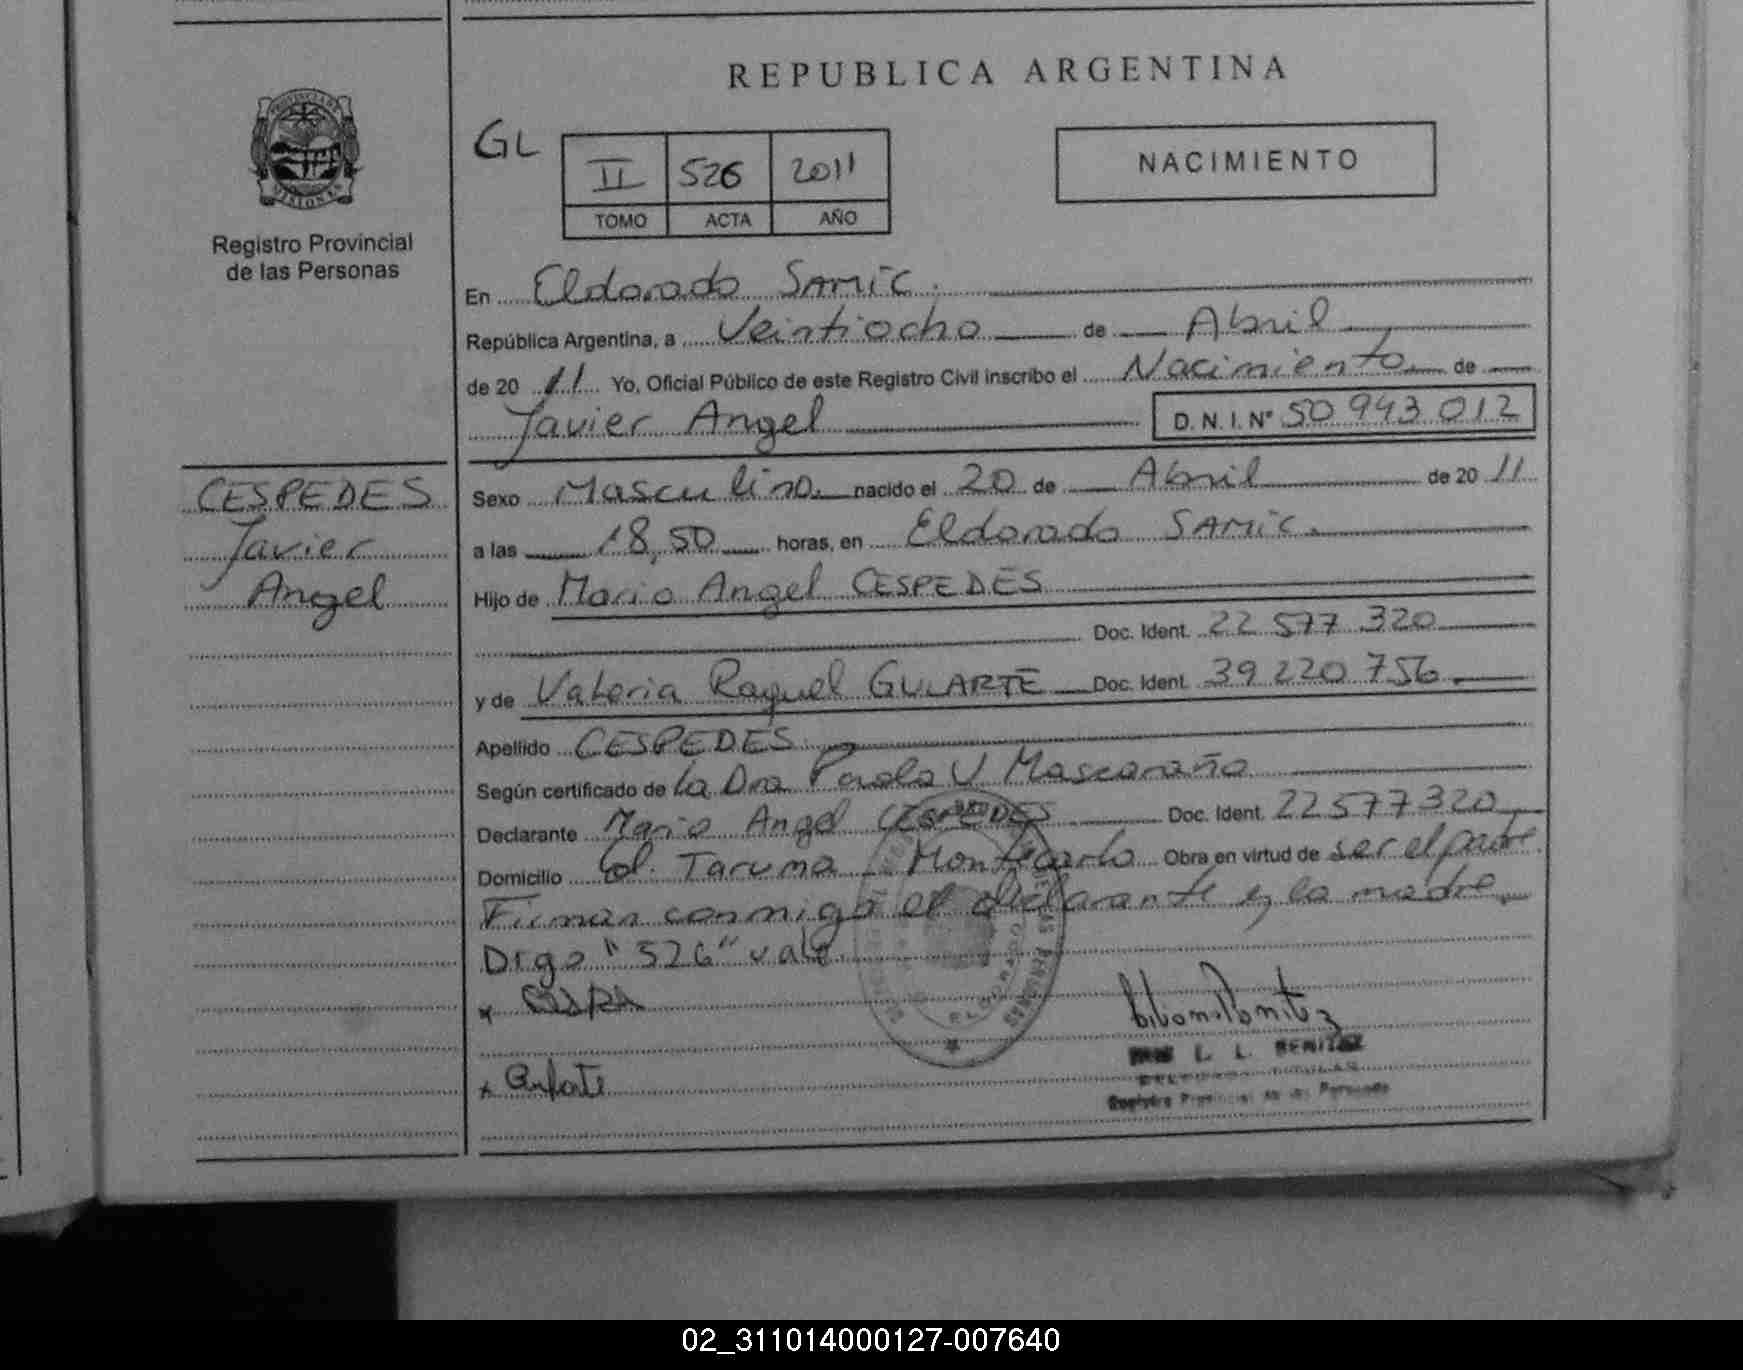 REPUBLICA ARGENTINA
PROVINCIA DE
MISIONES
Registro Provincial
de las Personas
GL
II 526 2011
TOMO ACTA AÑO
NACIMIENTO
En Eldorado SAMIC.
República Argentina, a Veintiocho de Abril
de 20 11 Yo, Oficial Público de este Registro Civil inscribo el Nacimiento de
Javier Angel D. N. I. Nº 50 943 012
CESPEDES
Javier
Angel
Sexo Masculino nacido el 20 de Abril de 20 11
a las 18,50 horas, en Eldorado SAMIC.
Hijo de Mario Angel CESPEDES
Doc. Ident. 22 577 320
y de Valeria Raquel GULARTE Doc. Ident. 39 220 756.
Apellido CESPEDES
Según certificado de la Dra Paola V Mascaraño
Declarante Mario Angel CESPEDES Doc. Ident. 22577320
Domicilio Col. Taruma Montecarlo Obra en virtud de ser el padre.
Firman conmigo el declarante y la madre
Digo "526" vale
L. L. BENITEZ
Registro Provincial de las Personas
02_311014000127-007640